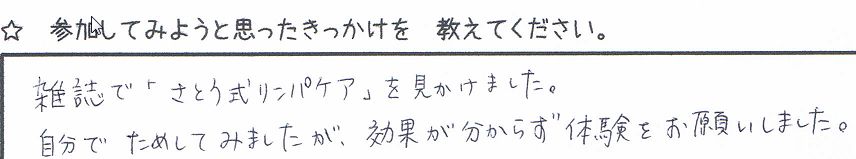 ☆ 参加してみようと思ったきっかけを 教えてください。
雑誌で「さとう式リンパケア」を見かけました。
自分で ためしてみましたが、効果が分からず 体験をお願いしました。